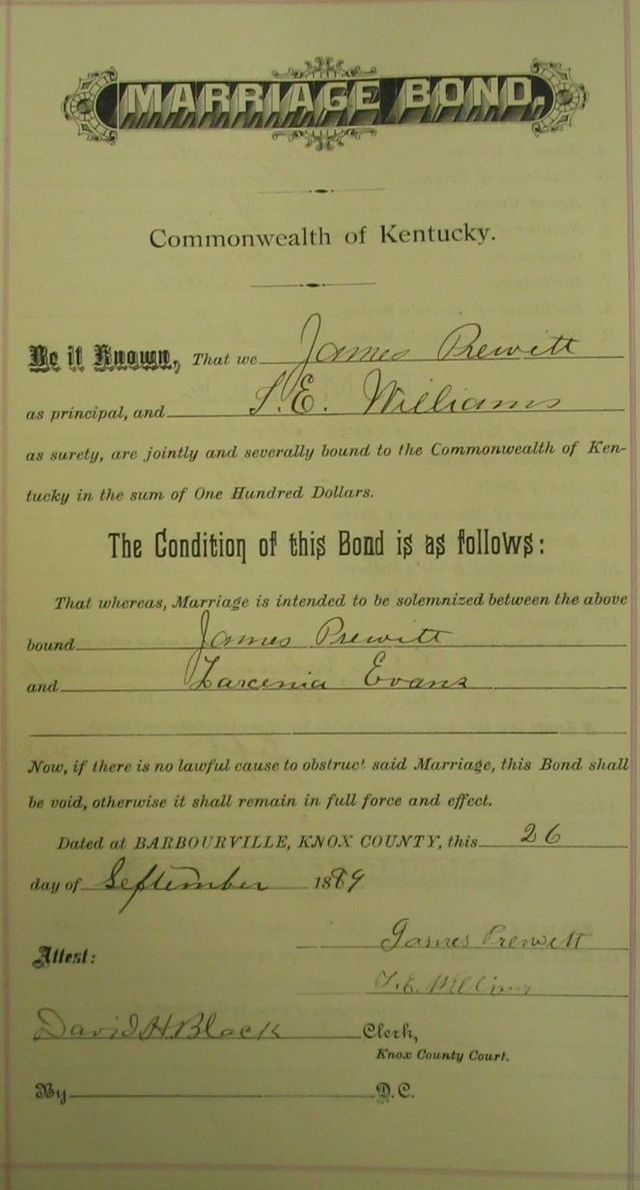 MARRIAGE BOND.
Commonwealth of Kentucky.
Be it Known, That we James Prewitt
as principal, and E. Williams
as surety, are jointly and severally bound to the Commonwealth of Ken-
tucky in the sum of One Hundred Dollars.
The Condition of this Bond is as follows:
That whereas, Marriage is intended to be solemnized between the above
bound James Prewitt
and Evans
Now, if there is no lawful cause to obstruct said Marriage, this Bond shall
be void, otherwise it shall remain in full force and effect.
Dated at BARBOURVILLE, KNOX COUNTY, this 26
day of September 1889
James Prewitt
Attest:
David H. Black Clerk,
Knox County Court.
By D.C.